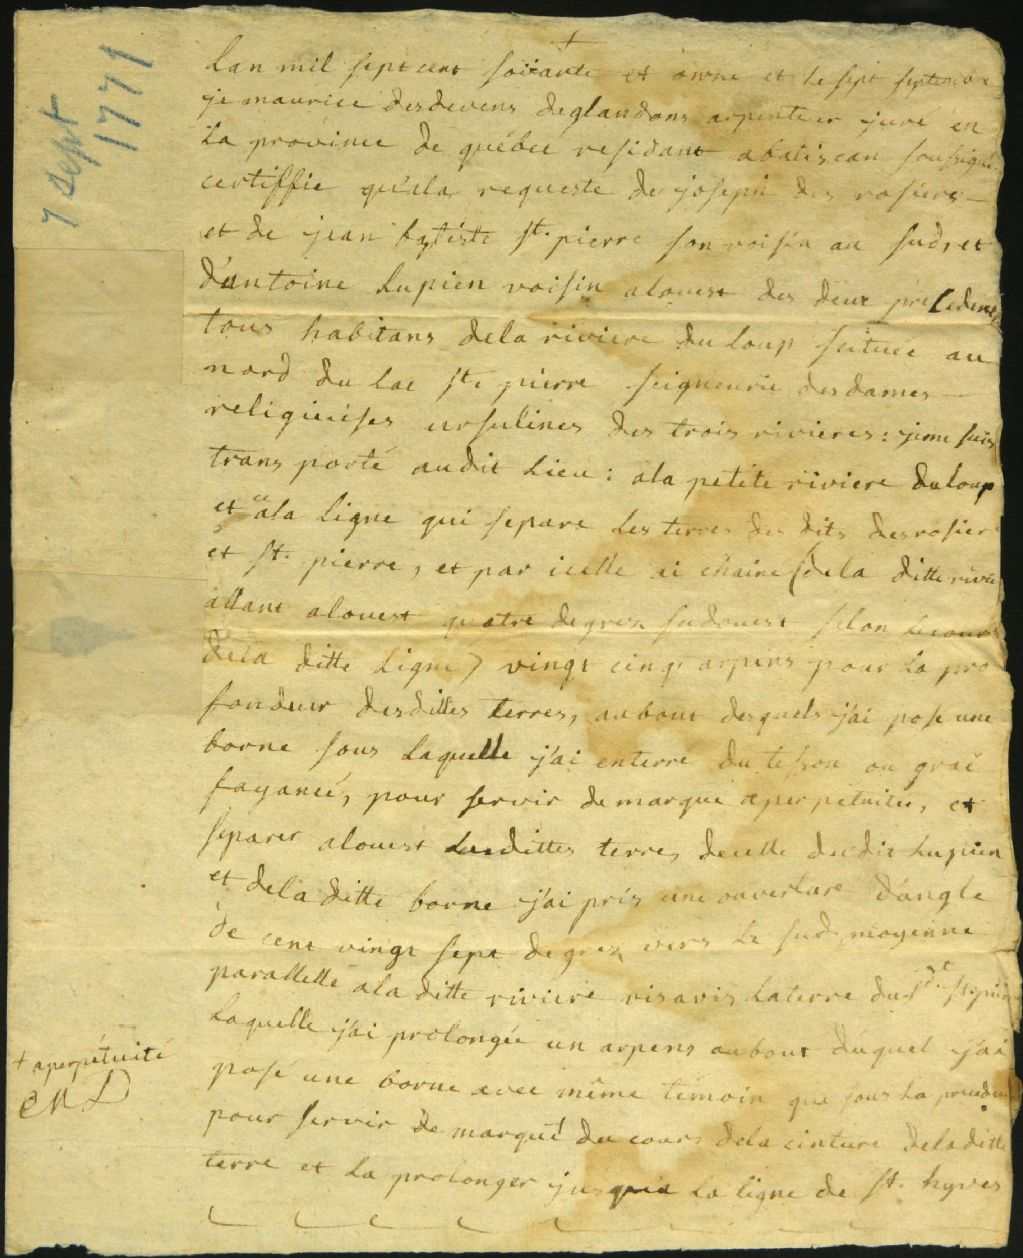 7 sept
1771
+
Lan mil sept cent soixante et onze et le sept septembre
je maurice desdevens deglandons arpenteur juré en
la province de quebec residant abatiscan soussigné
certiffie qu'ala requeste de joseph des rosiers —
et de jean batiste st. pierre son voisin au sud, et
d'antoine Lupien voisin alouest des deux precedens
tous habitans dela riviere du Loup scituée au
nord du Lac st. pierre seigneurie des dames —
religieuses ursulines des trois rivieres : je me suis
transporté audit Lieu : ala petite riviere du Loup
et ala Ligne qui separe Les terres des dits desrosier
et st. pierre, et par icelle ai chainé (dela ditte rivie
allant alouest quatre degrez sudouest selon Le cours
dela ditte Ligne) vingt cinq arpens pour La pro
fondeur desdittes terres, au bout desquels j'ai posé une
borne sous Laquelle j'ai enterré du tesson ou graé
fayancé, pour servir de marque aperpetuité, et
separer alouest Lesdittes terres decelle dudit Lupien
et dela ditte borne j'ai pris une ouverture d'angle
de cent vingt sept degrez vers Le sud, moyenne
parallelle ala ditte riviere visavis Laterre du dt. st pierre
Laquelle j'ai prolongée un arpens au bout duquel j'ai
posé une borne avec même temoin que sous La preceden
pour servir de marque + du cours dela cinture dela ditte
terre et La prolonger jusqu'a La ligne de st. hyves
+ aperpétuité